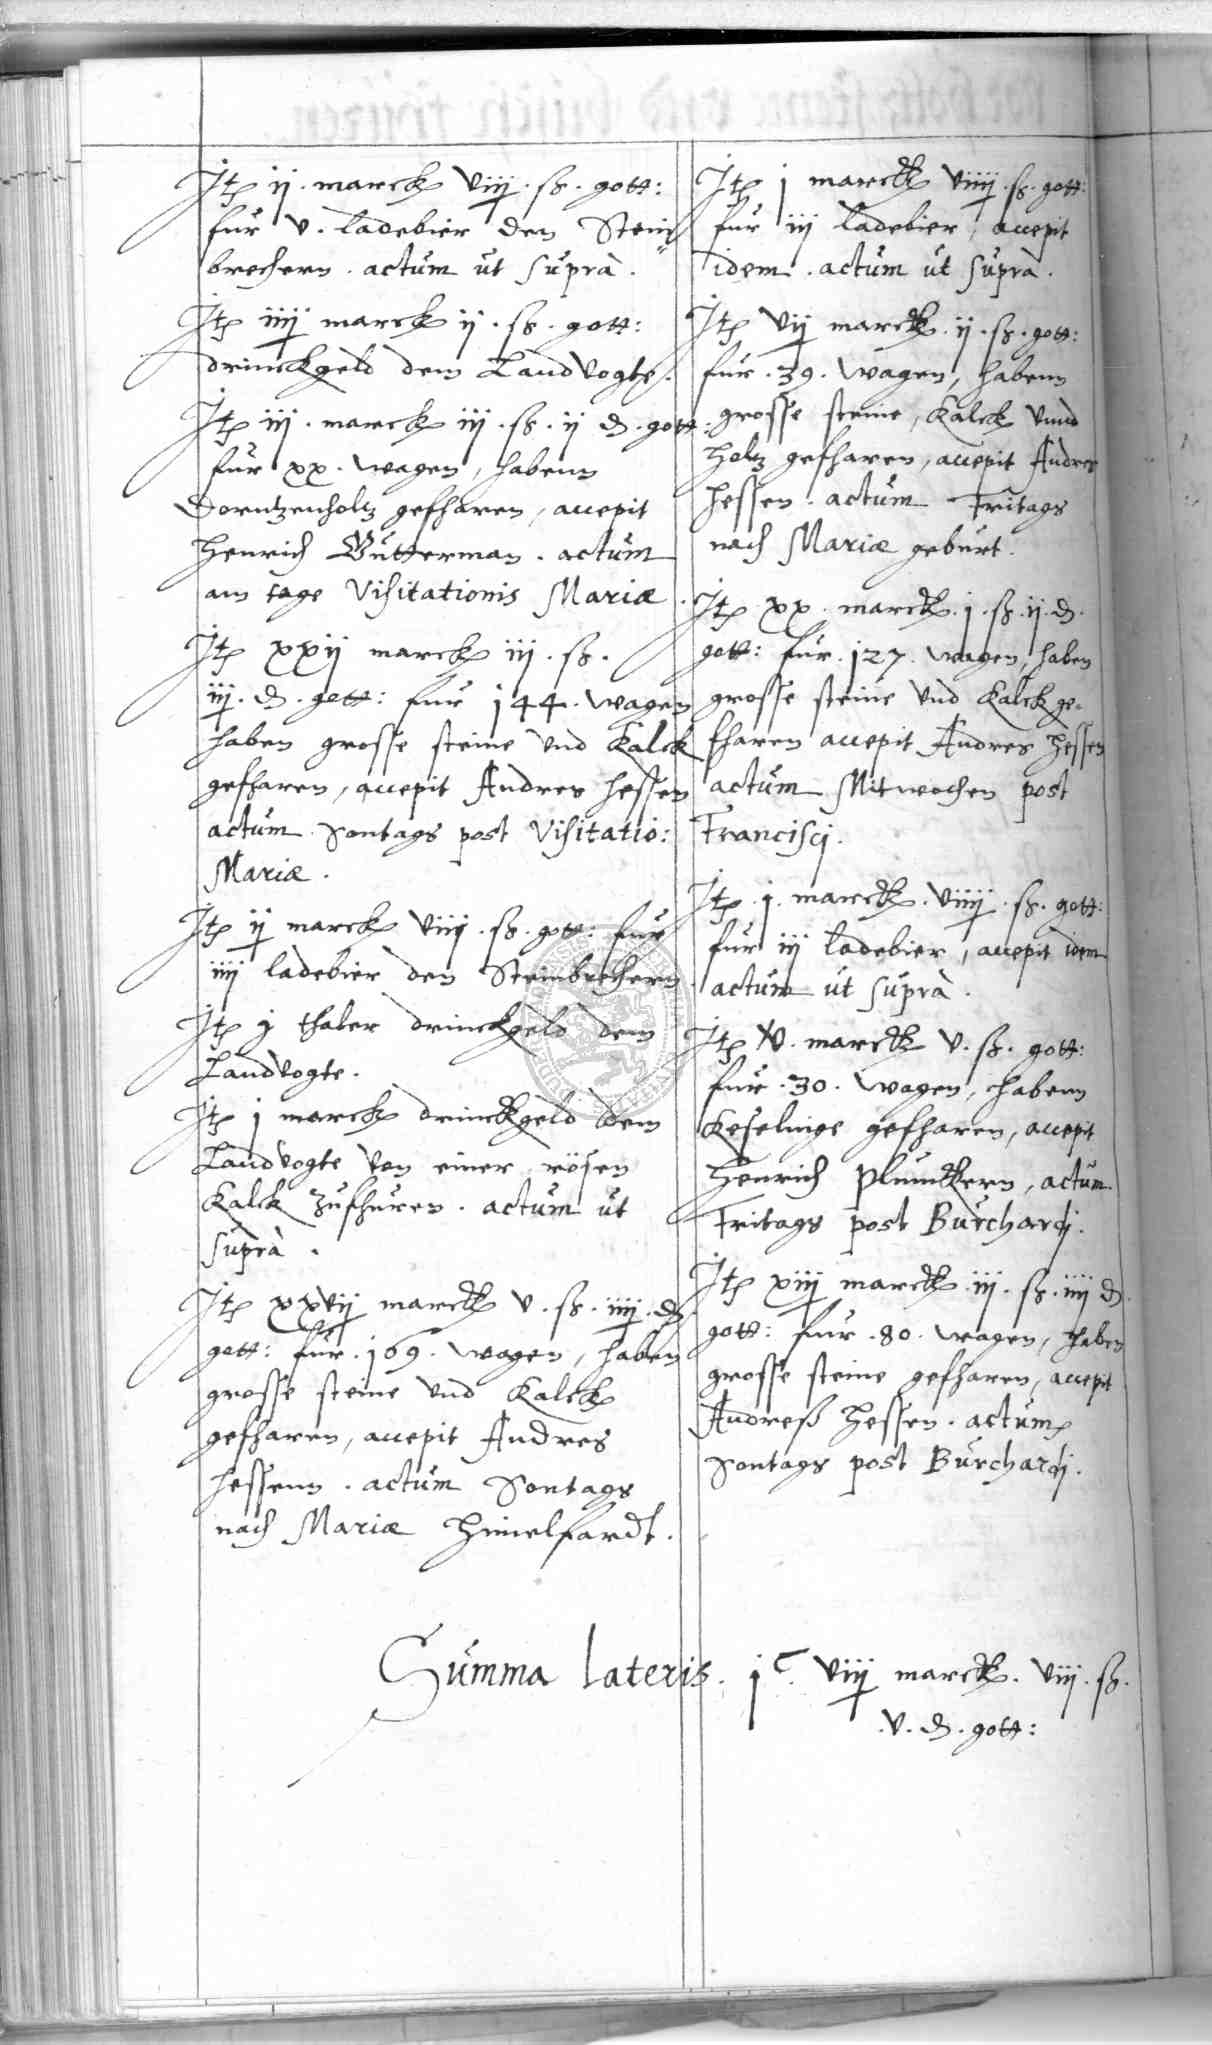 Jtꝫ ij . marck viij . ß . gott:
fur v . ladebier den Stein
brechern . actum ut suprà .
Jtꝫ iiij marck ij . ß . gott:
drinckgeld dem Landvogte .
Jtꝫ iij . marck iij . ß . ij ₰ . gott:
fur xx . wagen, habenn
Dorntzenholtz gefharen, accepit
Henrich Gutterman . actum
am tage Visitationis Mariæ .
Jtꝫ xxij marck iij . ß .
iij . ₰ . gott: fur 144 . wagen
haben grosse steine vnd Kalck
gefharen, accepit Andres Hessen
actum Sontags post Visitatio:
Mariæ .
Jtꝫ ij marck viij . ß . gott: fur
iiij ladebier den Steinbrechern
Jtꝫ j thaler drinckgeld dem
Landvogte .
Jtꝫ j marck drinckgeld dem
Landvogte von einer rösen
Kalck zufhuren . actum ut
suprà .
Jtꝫ xxvij marck v . ß . iiij . ₰
gott: fur . 169 . wagen, haben
grosse steine vnd Kalck
gefharen, accepit Andres
Hessenn . actum Sontags
nach Mariæ Himelfardt .
Jtꝫ j marck viiij . ß . gott:
fur iij ladebier, accepit
idem . actum ut suprà .
Jtꝫ vij marck . ij . ß . gott:
fur . 39 . wagen, habenn
grosse steine, Kalck vnnd
holtz gefharen, accepit Andres
Hessen . actum Fritags
nach Mariæ geburt .
Jtꝫ xx . marck . j . ß . ij . ₰ .
gott: fur . 127 . wagen, haben
grosse steine vnd Kalck ge-
fharen accepit Andres Hessen
actum Mitwochen post
Francisci .
Jtꝫ . j . marck . viiij . ß . gott:
fur iij ladebier, accepit idem
actum ut suprà .
Jtꝫ v . marck v . ß . gott:
fur . 30 . wagen, habenn
Keselinge gefharen, accepit
Henrich Plumckern, actum
Fritags post Burchardj .
Jtꝫ xiij marck . iij . ß . iiij ₰ .
gott: fur . 80 . wagen, haben
grosse steine gefharen, accepit
Andreß Hessen . actum
Sontags post Burchardj .
Summa lateris . jᶜ . viij marck . viij . ß .
v . ₰ . gott: